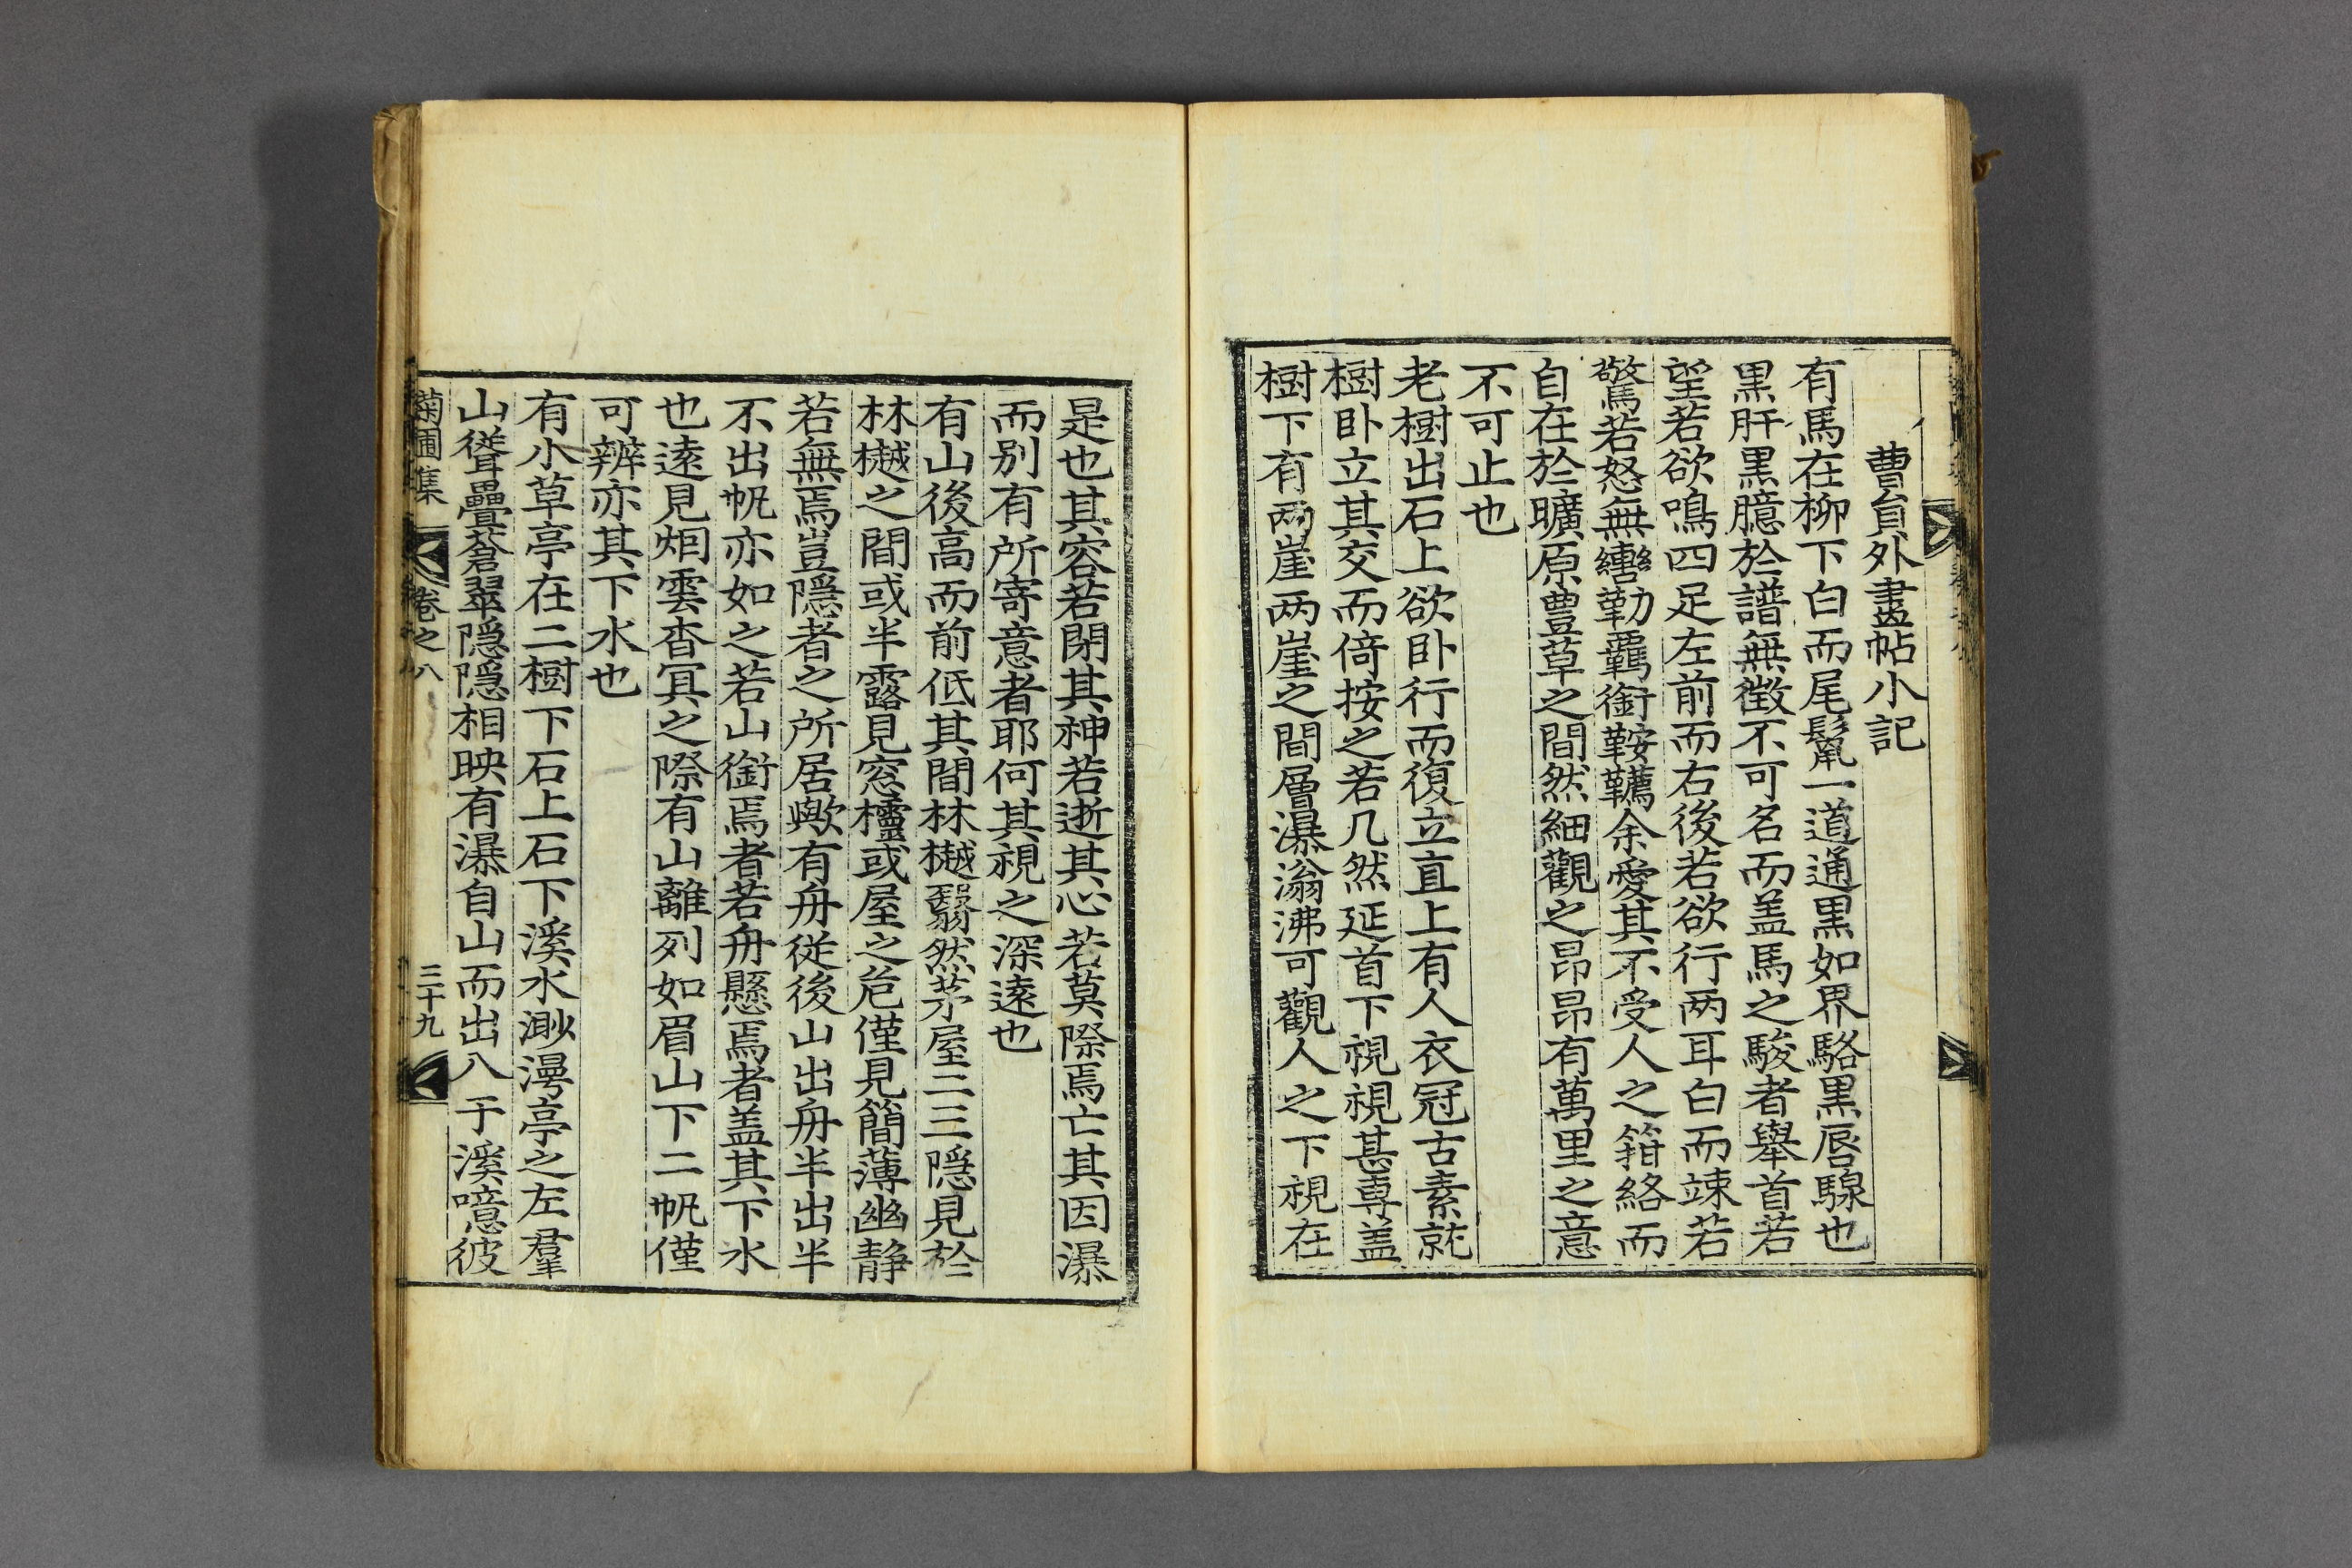 曹員外畫帖小記
有馬在柳下白而尾鬣一道通黒如界駱黒唇騵也
黒肝黒臆於譜無徴不可名而盖馬之駿者舉首若
望若欲鳴四足左前而右後若欲行两耳白而竦若
驚若怒無轡勒羈銜鞍韉余愛其不受人之箝絡而
自在於曠原豊草之間然細觀之昂昂有萬里之意
不可止也
老樹出石上欲卧行而復立直上有人衣冠古素就
樹卧立其交而倚按之若几然延首下視視甚専盖
樹下有两崖两崖之間層瀑滃沸可觀人之下視在
是也其容若閉其神若逝其心若莫際焉亡其因瀑
而别有所寄意者耶何其視之深遠也
有山後高而前低其間林樾翳然茅屋二三隠見於
林樾之間或半露見窓櫺或屋之危僅見簡薄幽静
若無焉豈隠者之所居歟有舟従後山出舟半出半
不出帆亦如之若山銜焉者若舟懸焉者盖其下水
也遠見烟雲杳冥之際有山離列如眉山下二帆僅
可辨亦其下水也
有小草亭在二樹下石上石下溪水渺漫亭之左羣
山聳疊蒼翠隠隠相映有瀑自山而出八于溪噫彼
菊圃集 卷之八 三十九